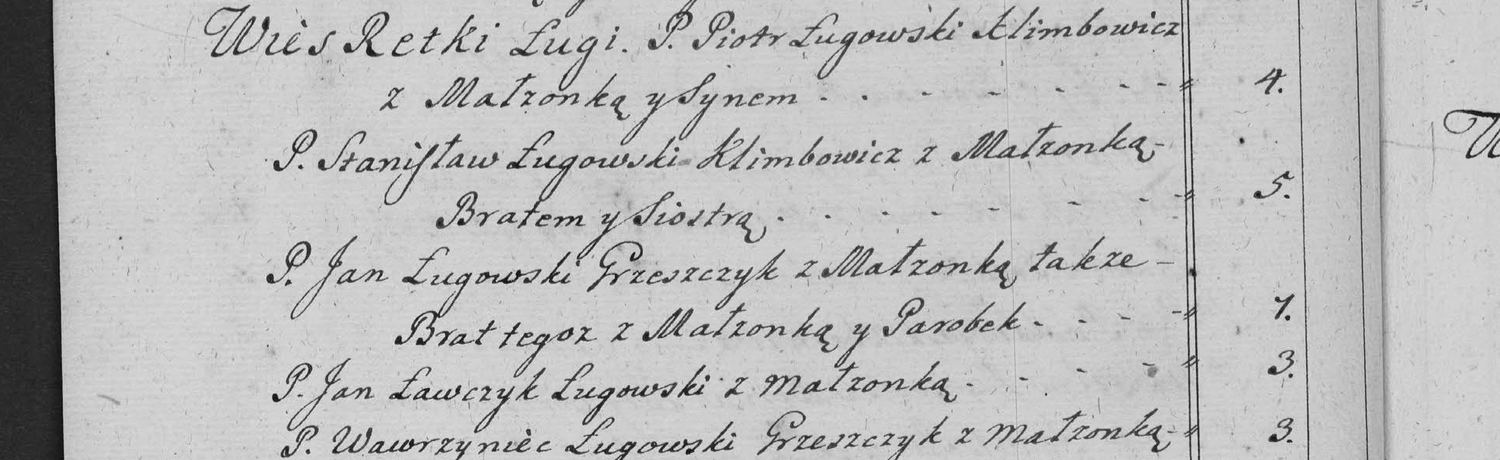 Wies Retki Ługi. P. Piotr Ługowski Klimbowicz
z Małzonką y Synem - - - - - - " 4.
P. Stanisław Ługowski Klimbowicz z Małzonką -
Bratem y Siostrą - - - - - - - " 5.
P. Jan Ługowski Grzeszczyk z Małzonką takze -
Brat tegoz z Małzonką y Parobek - - - - " 7.
P. Jan Ławczyk Ługowski z małzonką - - - - " 3.
P. Wawrzyniec Ługowski Grzeszczyk z małzonką - " 3.